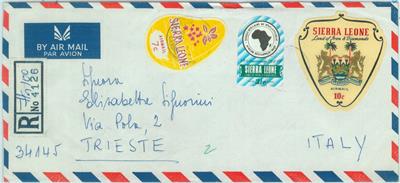 BY AIR MAIL
PAR AVION
SIERRA LEONE
AIRMAIL
7c
SIERRA LEONE
SIERRA LEONE
Land of Iron & Diamonds
AIRMAIL
10c
R
No 4126
Signora
Elisabetta Signorini
Via Pola, 2
34145 TRIESTE
ITALY
2